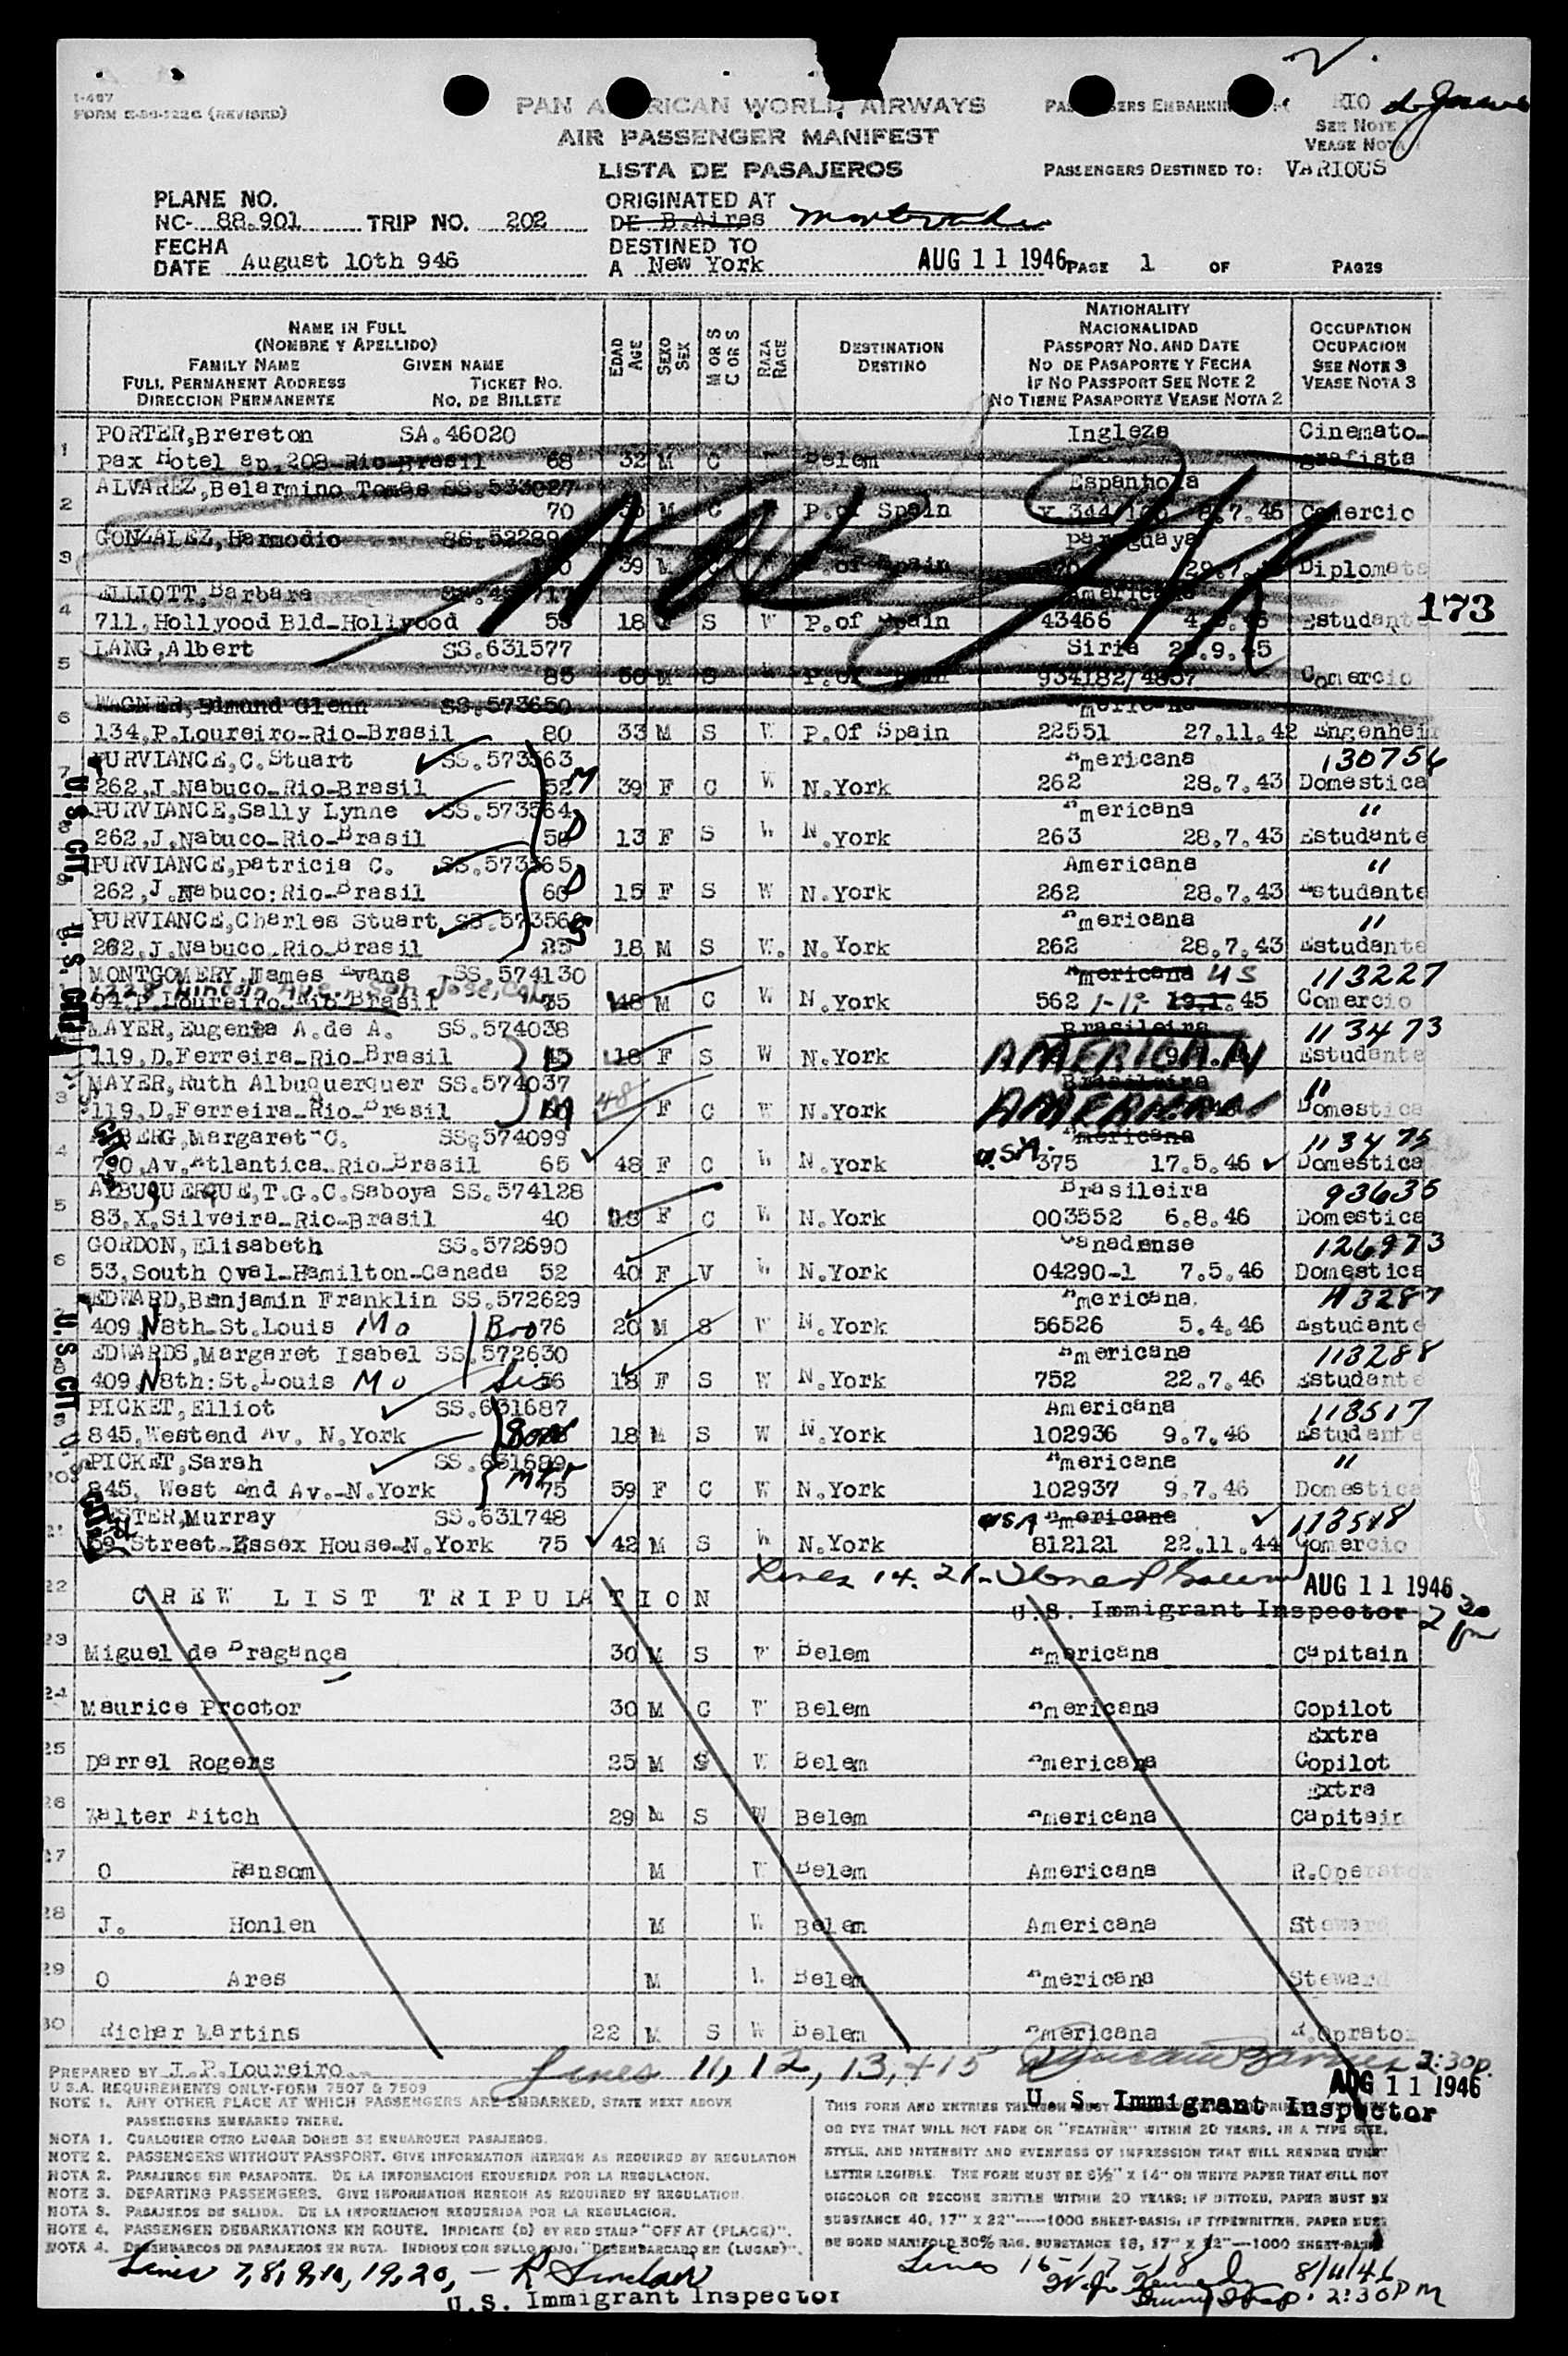 I-467
FORM E-30-122G (REVISED)
PAN AMERICAN WORLD AIRWAYS
AIR PASSENGER MANIFEST
LISTA DE PASAJEROS
RIO de Janeiro
SEE NOTE 1
VEASE NOTA 1
PASSENGERS DESTINED TO: VARIOUS
PLANE NO.
NC- 88.901 TRIP NO. 202
ORIGINATED AT
DE B.Aires Montevideo
FECHA
DATE August 10th 946
DESTINED TO
A New York
AUG 11 1946
PAGE 1 OF PAGES
NAME IN FULL
(NOMBRE Y APELLIDO)
FAMILY NAME GIVEN NAME
FULL PERMANENT ADDRESS TICKET NO.
DIRECCION PERMANENTE NO. DE BILLETE
EDAD AGE
SEXO SEX
M OR S C OR S
RAZA RACE
DESTINATION
DESTINO
NATIONALITY
NACIONALIDAD
PASSPORT NO. AND DATE
NO DE PASAPORTE Y FECHA
IF NO PASSPORT SEE NOTE 2
NO TIENE PASAPORTE VEASE NOTA 2
OCCUPATION
OCUPACION
SEE NOTE 3
VEASE NOTA 3
1 PORTER,Brereton SA.46020 Ingleza Cinemato-
pax Hotel ap.208-Rio-Brasil 68 32 M C Belem grafista
2 ALVAREZ,Belarmino Tomas SS.533027 Espanhola
70 M C P.of Spain 8.7.46 Comercio
3 GONZALEZ,Harmodio Paraguaya
39 M P.of Spain Diplomata
4 ELLIOTT,Barbara Americana
711,Hollyood Bld-Hollywood 18 F S W P.of Spain 43466 Estudante
173
5 LANG,Albert SS.631577 Siria
85 M S P.of Spain 934182/4837 Comercio
6 WAGNER,Edmund Glenn SS.573650 Americana
134,P.Loureiro-Rio-Brasil 80 33 M S W P.Of Spain 22551 27.11.42 Engenheir
7 PURVIANCE,C.Stuart SS.573563 Americana 130756
262,J.Nabuco-Rio-Brasil 52 M 39 F C W N.York 262 28.7.43 Domestica
8 PURVIANCE,Sally Lynne SS.573564 Americana "
262,J.Nabuco-Rio-Brasil 50 D 13 F S W N.York 263 28.7.43 Estudante
9 PURVIANCE,patricia C. SS.573565 Americana "
262,J.Nabuco:Rio-Brasil 60 D 15 F S W N.York 262 28.7.43 Estudante
PURVIANCE,Charles Stuart SS.573566 Americana "
262,J.Nabuco-Rio-Brasil S 18 M S W. N.York 262 28.7.43 Estudante
U.S. CIT.
U.S. CIT.
MONTGOMERY,James Evans SS.574130 Americana US 113227
Lincoln Ave., San Jose, Cal
94,P.Loureiro-Rio-Brasil 75 48 M C W N.York 562 1-19- 19.1.45 Comercio
MAYER,Eugenia A.de A. SS.574038 Brasileira 113473
119,D.Ferreira-Rio-Brasil D 18 F S W N.York AMERICAN Estudante
3 MAYER,Ruth Albuquerquer SS.574037 Brasileira "
119,D.Ferreira-Rio-Brasil M 48 F C W N.York AMERICAN Domestica
4 SS.574099 Americana 113475
790,Av.Atlantica-Rio-Brasil 65 48 F C W N.York U.S.A. 375 17.5.46 Domestica
5 ALBUQUERQUE,T.G.C.Saboya SS.574128 Brasileira 93635
83,X.Silveira-Rio-Brasil 40 F C W N.York 003552 6.8.46 Domestica
6 GORDON,Elisabeth SS.572690 Canadense 126973
53,South Oval-Hamilton-Canada 52 40 F V W N.York 04290-1 7.5.46 Domestica
EDWARD,Benjamin Franklin SS.572629 Americana. 113287
409 N8th-St.Louis Mo Bro 76 20 M S W N.York 56526 5.4.46 Estudante
EDWARDS,Margaret Isabel SS.572630 Americana 113288
409 N8th:St.Louis Mo Sis 56 18 F S W N.York 752 22.7.46 Estudante
U.S. CIT.
PICKET,Elliot SS.631687 Americana 113517
845,Westend Av. N.York Son 18 M S W N.York 102936 9.7.46 Estudante
20 PICKET,Sarah SS.631689 Americana "
845, West End Av.-N.York mtr 75 59 F C W N.York 102937 9.7.46 Domestica
21 Murray SS.631748 USA Americana 113518
Street-Essex House-N.York 75 42 M S W N.York 812121 22.11.44 Comercio
Lines 14. 21-
AUG 11 1946
22 CREW LIST TRIPULATION
U.S. Immigrant Inspector 2 30 pm
23 Miguel de Bragança 30 M S W Belem Americana Capitain
24 Maurice Proctor 30 M C W Belem Americana Copilot
25 Darrel Rogers 25 M S W Belem Americana Extra Copilot
26 Walter Fitch 29 M S W Belem Americana Extra Capitain
27 O Ransom M W Belem Americana R.Operator
28 J. Honlen M W Belem Americana Steward
29 O Ares M W Belem Americana Steward
30 Richar Martins 22 M S W Belem Americana R.Oprator
PREPARED BY J.P.Loureiro. Lines 11, 12, 13, + 15 2:30p.
AUG 11 1946
U.S. Immigrant Inspector
U S.A. REQUIREMENTS ONLY-FORM 7507 & 7509
NOTE 1. ANY OTHER PLACE AT WHICH PASSENGERS ARE EMBARKED, STATE NEXT ABOVE
PASSENGERS EMBARKED THERE.
NOTA 1. CUALQUIER OTRO LUGAR DONDE SE EMBARQUEN PASAJEROS.
NOTE 2. PASSENGERS WITHOUT PASSPORT. GIVE INFORMATION HEREON AS REQUIRED BY REGULATION
NOTA 2. PASAJEROS SIN PASAPORTE. DE LA INFORMACION REQUERIDA POR LA REGULACION.
NOTE 3. DEPARTING PASSENGERS. GIVE INFORMATION HEREON AS REQUIRED BY REGULATION.
NOTA 3. PASAJEROS DE SALIDA. DE LA INFORMACION REQUERIDA POR LA REGULACION.
NOTE 4. PASSENGER DEBARKATIONS EN ROUTE. INDICATE (D) BY RED STAMP "OFF AT (PLACE)".
NOTA 4. DESEMBARCOS DE PASAJEROS EN RUTA. INDIQUE CON SELLO ROJO: "DESEMBARCADO EN (LUGAR)".
THIS FORM AND ENTRIES THEREON MUST
OR DYE THAT WILL NOT FADE OR "FEATHER" WITHIN 20 YEARS, IN A TYPE SIZE,
STYLE, AND INTENSITY AND EVENNESS OF IMPRESSION THAT WILL RENDER EVERY
LETTER LEGIBLE. THE FORM MUST BE 8½" X 14" ON WHITE PAPER THAT WILL NOT
DISCOLOR OR BECOME BRITTLE WITHIN 20 YEARS; IF DITTOED, PAPER MUST BE
SUBSTANCE 40, 17" X 22"-----1000 SHEET-BASIS; IF TYPEWRITTEN, PAPER MUST
BE BOND MANIFOLD 50% RAG, SUBSTANCE 16, 17" X 22"---1000 SHEET-BASIS
Lines 7, 8, 9, 10, 19, 20, - R Sinclair
U.S. Immigrant Inspector
Lines 16-17-18 8/11/46
2:30PM